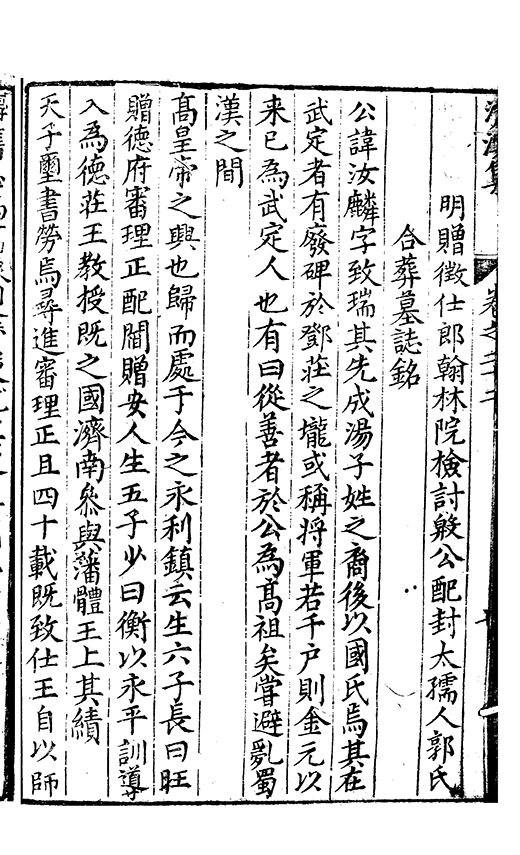 明贈徵仕郎翰林院檢討殷公配封太孺人郭氏
合葬墓誌銘
公諱汝麟字致瑞其先成湯子姓之裔後以國氏焉其在
武定者有廢碑於鄧莊之壠或稱將軍若千户則金元以
来已為武定人也有曰從善者於公為髙祖矣甞避亂蜀
漢之間
髙皇帝之興也歸而處于今之永利鎮云生六子長曰旺
贈德府審理正配閻贈安人生五子少曰衡以永平訓導
入為德莊王教授既之國濟南叅與藩體王上其績
天子璽書勞焉尋進審理正且四十載既致仕王自以師